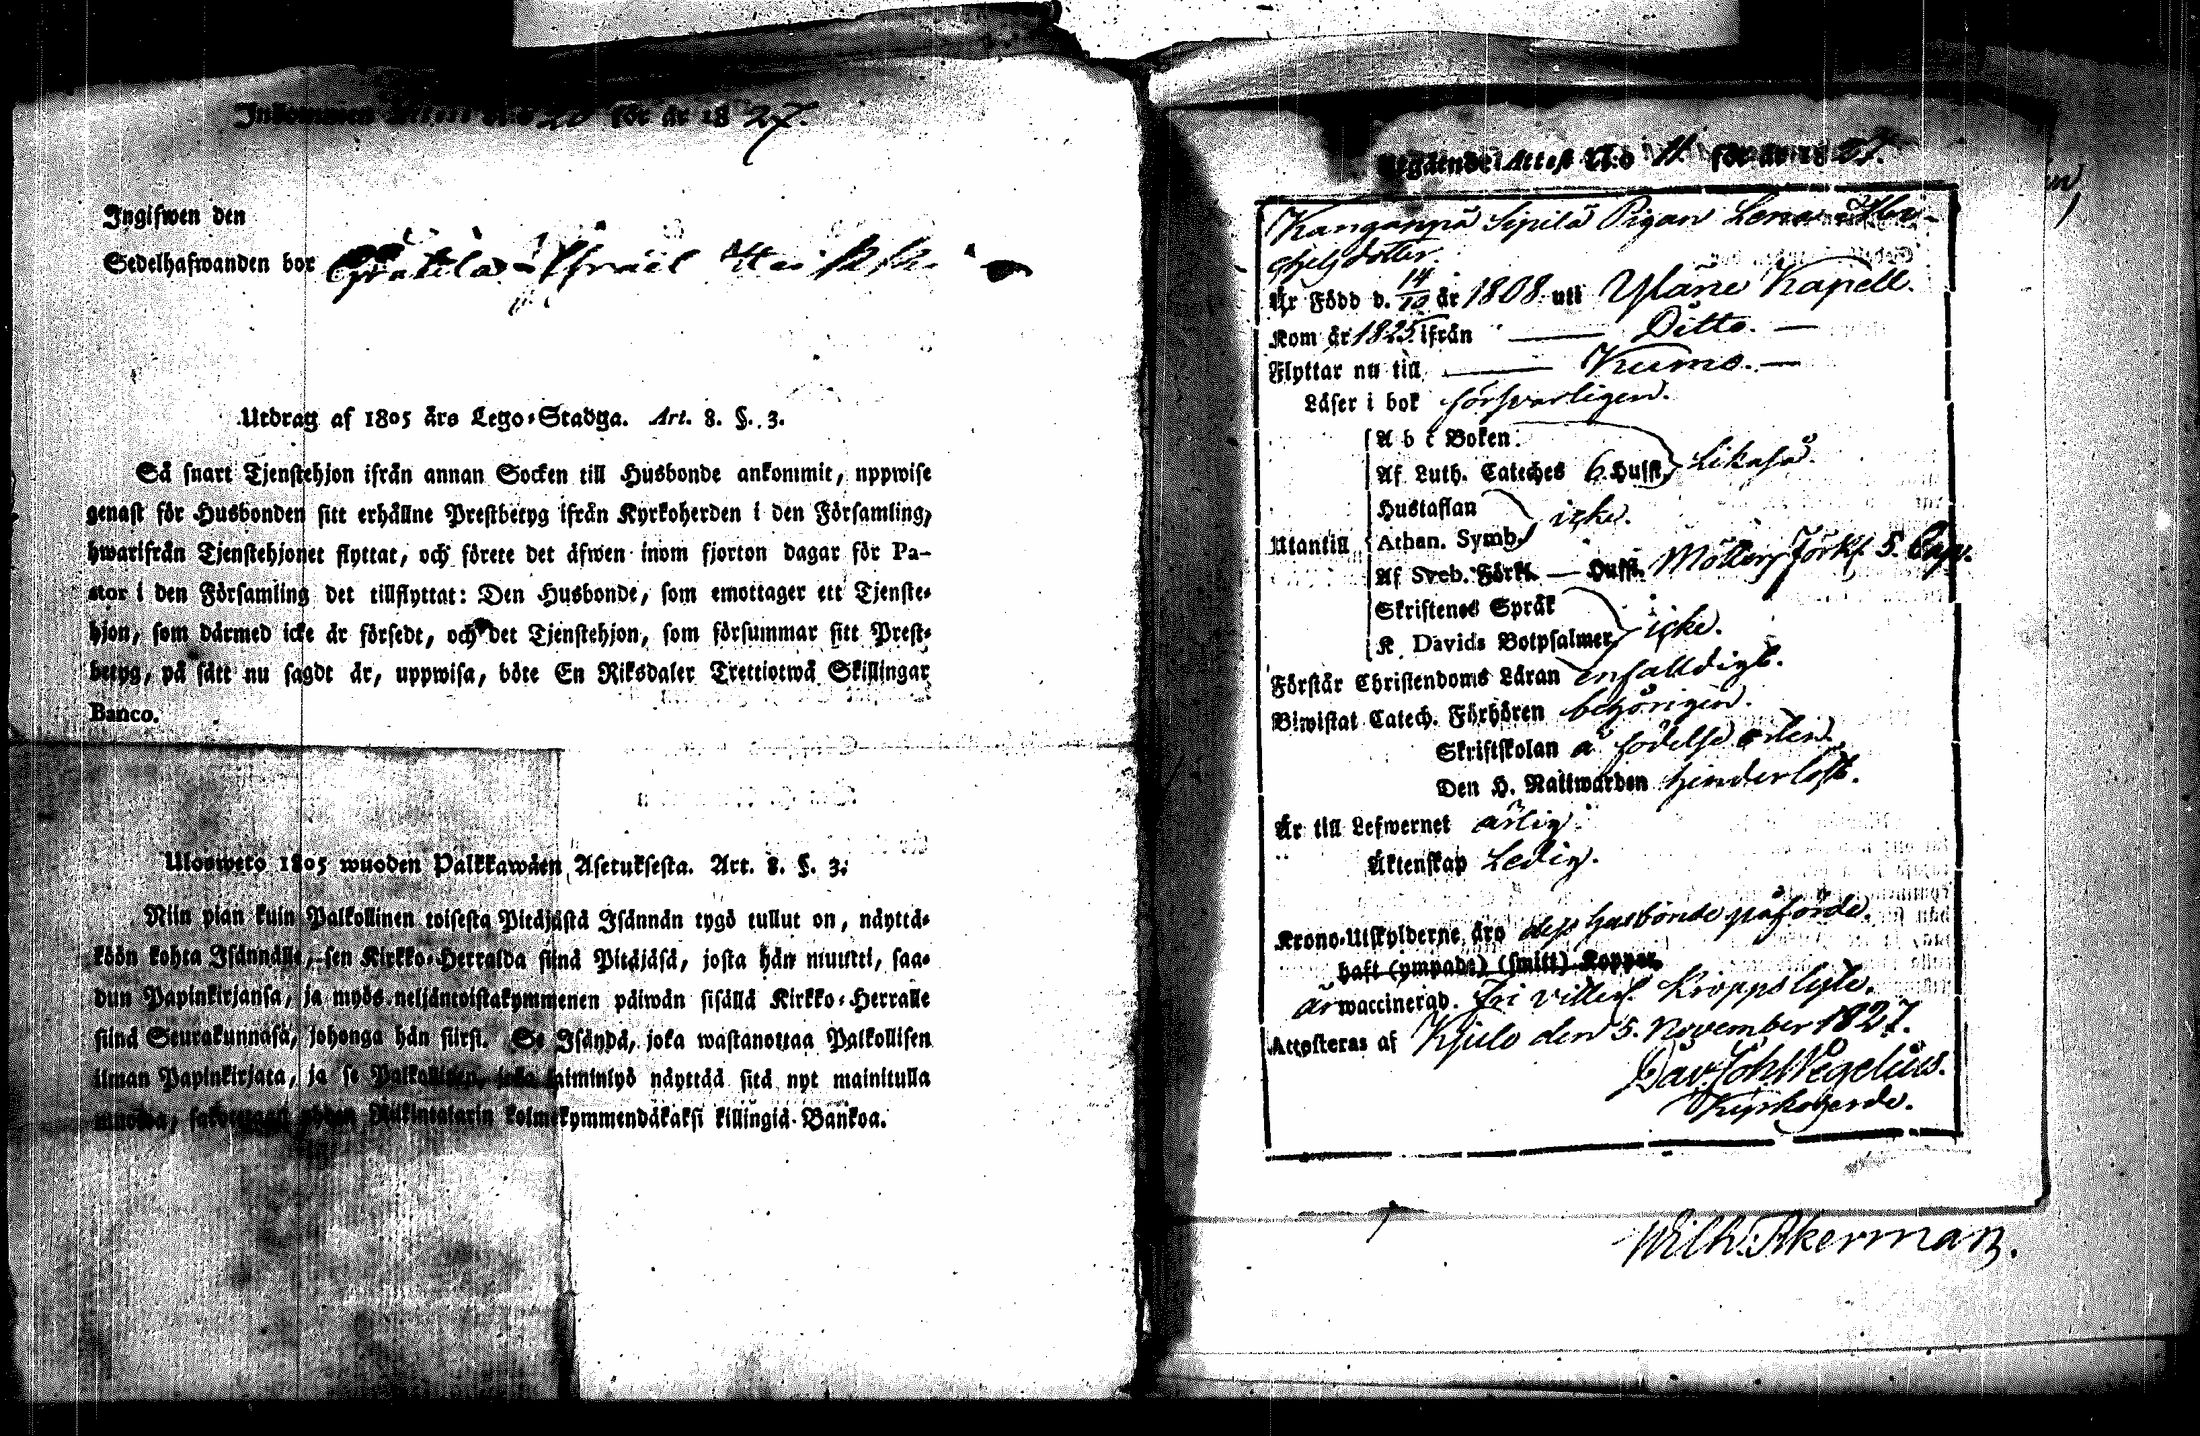 Inkommen för år 1827.
Ingifwen den
Sedelhafwanden bor Israel Heikki
Utdrag af 1805 års Lego-Stadga. Art. 8. §. 3.
Så snart Tjenstehjon ifrån annan Socken till Husbonde ankommit, uppwise
genast för Husbonden sitt erhållne Prestbetyg ifrån Kyrkoherden i den Församling,
hwarifrån Tjenstehjonet flyttat, och förete det äfwen inom fjorton dagar för Pa-
stor i den Församling det tillflyttat: Den Husbonde, som emottager ett Tjenste-
hjon, som därmed icke är försedt, och det Tjenstehjon, som försummar sitt Prest-
betyg, på sätt nu sagdt är, uppwisa, böte En Riksdaler Trettiotwå Skillingar
Banco.
Ulosweto 1805 wuoden Palkkawäen Asetuksesta. Art. 8. §. 3.
Niin pian kuin Palkollinen toisesta Pitäjästä Isännän tygö tullut on, näyttä-
köön kohta Isännälle, sen Kirkko-Herralda siinä Pitäjäsä, josta hän muutti, saa-
dun Papinkirjansa, ja myös neljäntoistakymmenen päiwän sisällä Kirkko-Herralle
siinä Seurakunnasa, johonga hän siirsi. Se Isändä, joka wastanottaa Palkollisen
ilman Papinkirjata, ja se Palkollinen, joka laiminlyö näyttää sitä nyt mainitulla
muodolla, Riikintalarin kolmekymmendäkaksi killingiä Bankoa.
Utgående Attest N:o 11. för år 1827.
Kanganpä Sipilä Pigan Lena
dotter.
Är Född d. 14/10 år 1808 uti Yläne Kapell.
Kom år 1825 ifrån — Ditto. —
Flyttar nu till — Kumo. —
Läser i bok försvarligen.
A b c Boken.
Af Luth. Cateches 6. Husst. Likaså.
Hustaflan
Utantill Athan. Symb. icke.
Af Sveb. Förkl. — Husst. Möllers Förkl. 5. Cap.
Skriftenes Språk
K. Davids Botpsalmer icke.
Förstår Christendoms Läran enfalldigt.
Biwistat Catech. Förhören behörigen.
Skriftskolan å födelse orten.
Den H. Nattwarden hinderlöst.
Är till Lefwernet ärlig.
Äktenskap Ledig.
Krono-Utskylderne äro dess husbonde påförde.
haft (ympade) (smitt) Koppor.
är waccinerad. Fri villerl. kroppslyte.
Attesteras af Kjulo den 5. November 1827.
Dav. Joh. Wegelius.
Kyrkoherde.
Wilh. Åkerman.